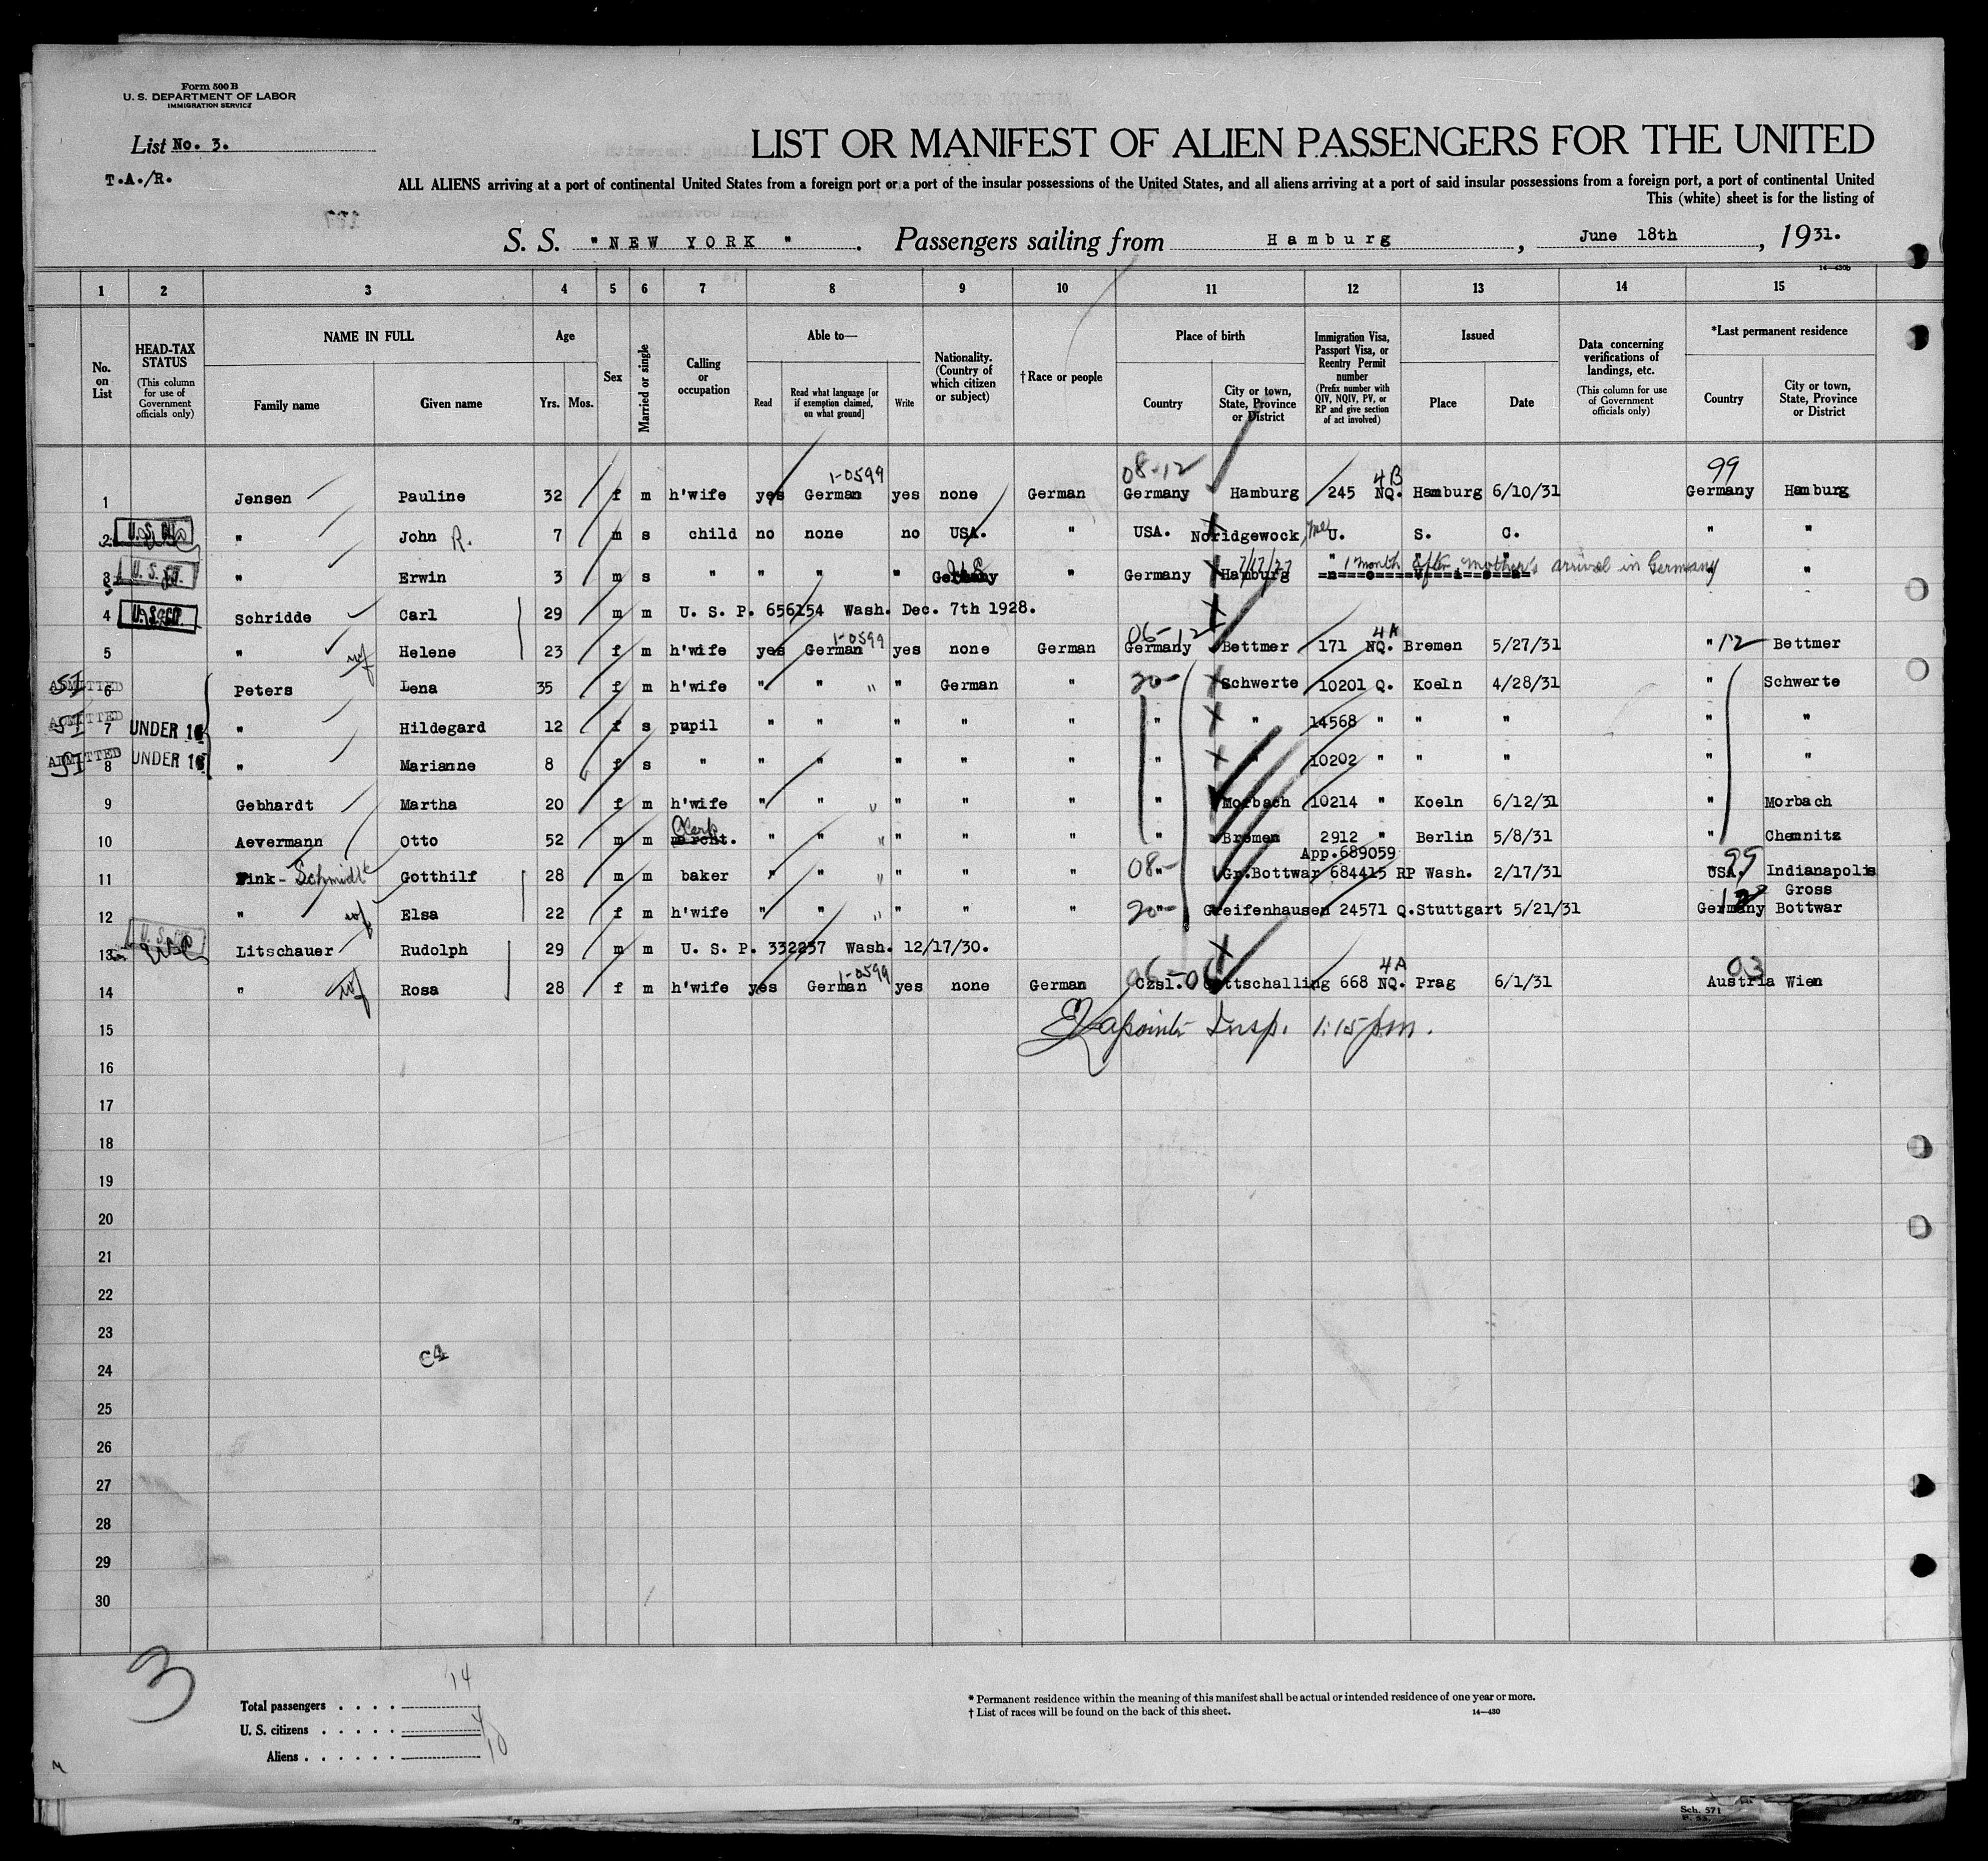 Form 500 B
U. S. DEPARTMENT OF LABOR
IMMIGRATION SERVICE
List No. 3.
T.A./R.
LIST OR MANIFEST OF ALIEN PASSENGERS FOR THE UNITED
ALL ALIENS arriving at a port of continental United States from a foreign port or a port of the insular possessions of the United States, and all aliens arriving at a port of said insular possessions from a foreign port, a port of continental United
This (white) sheet is for the listing of
S. S. "NEW YORK". Passengers sailing from Hamburg, June 18th, 1931.
14—430b
1 2 3 4 5 6 7 8 9 10 11 12 13 14 15
No. on List
HEAD-TAX STATUS (This column for use of Government officials only)
NAME IN FULL
Family name Given name
Age
Yrs. Mos.
Sex
Married or single
Calling or occupation
Able to—
Read Read what language [or if exemption claimed, on what ground] Write
Nationality. (Country of which citizen or subject)
†Race or people
Place of birth
Country City or town, State, Province or District
Immigration Visa, Passport Visa, or Reentry Permit number (Prefix number with QIV, NQIV, PV, or RP and give section of act involved)
Issued
Place Date
Data concerning verifications of landings, etc. (This column for use of Government officials only)
*Last permanent residence
Country City or town, State, Province or District
1-0599 08-12 4B 99
1 Jensen Pauline 32 f m h'wife yes German yes none German Germany Hamburg 245 NQ. Hamburg 6/10/31 Germany Hamburg
2 " John R. 7 m s child no none no USA. " USA. Noridgewock, Me U. S. C. " "
7/17/27 1 month after mother's arrival in Germany
3 U.S. " Erwin 3 m s " " " " Germany US " Germany Hamburg " "
4 Schridde Carl 29 m m U. S. P. 656154 Wash. Dec. 7th 1928.
1-0599 06-12 4A
5 " wf Helene 23 f m h'wife yes German yes none German Germany Bettmer 171 NQ. Bremen 5/27/31 " 12 Bettmer
ADMITTED SI 6 Peters Lena 35 f m h'wife " " " German " 20- Schwerte 10201 Q. Koeln 4/28/31 " Schwerte
ADMITTED SI 7 UNDER 16 " Hildegard 12 f s pupil " " " " " " " 14568 " " " " "
ADMITTED SI 8 UNDER 16 " Marianne 8 f s " " " " " " " " 10202 " " " " "
9 Gebhardt Martha 20 f m h'wife " " " " " " Morbach 10214 " Koeln 6/12/31 " Morbach
10 Aevermann Otto 52 m m mercht. Clerk " " " " " " Bremen 2912 " Berlin 5/8/31 " Chemnitz
App.689059
11 Fink- Schmidt Gotthilf 28 m m baker " " " " " 08- " Gr.Bottwar 684415 RP Wash. 2/17/31 USA. 99 Indianapolis
12 " wf Elsa 22 f m h'wife " " " " " 20- " Greifenhausen 24571 Q.Stuttgart 5/21/31 Germany 12 Gross Bottwar
13 USC Litschauer Rudolph 29 m m U. S. P. 332237 Wash. 12/17/30.
1-0599 4A 03
14 " wf Rosa 28 f m h'wife yes German yes none German Czsl. 668 NQ. Prag 6/1/31 Austria Wien
15 Insp. 1:15 pm.
16
17
18
19
20
21
22
23
24
25
26
27
28
29
30
3
Total passengers . . . . 14
U. S. citizens . . . . . 4
Aliens . . . . . . 10
* Permanent residence within the meaning of this manifest shall be actual or intended residence of one year or more.
† List of races will be found on the back of this sheet.
14—430
Sch. 571